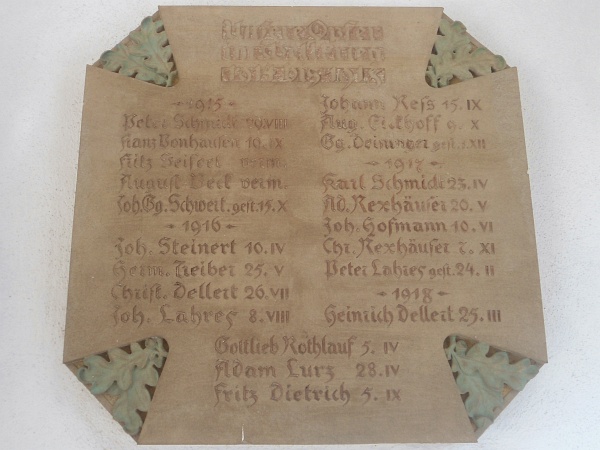 Unsere Opfer
1915
Peter Schmidt
Franz Bonhausen 10. IX
Fritz Seifert
August Beck verm.
Joh. Gg. Schwert. gest. 15. X
1916
Joh. Steinert 10. IV
Herm. Treiber 25. V
Christ. Dellert 26. VII
Joh. Lahres 8. VIII
Johann Ress 15. IX
Aug. Eickhoff 9. X
Gg. Deininger gest. XII
1917
Karl Schmidt 23. IV
Ad. Rexhäuser 20. V
Joh. Hofmann 10. VI
Chr. Rexhäuser 7. XI
Peter Lahres gest. 24. II
1918
Heinrich Dellert 25. III
Gottlieb Rothlauf 5. IV
Adam Lurz 28. IV
Fritz Dietrich 5. IX